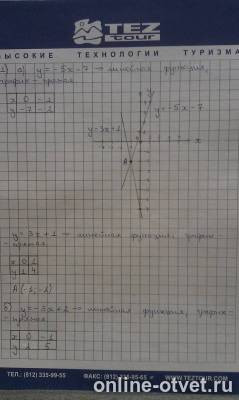 TEZ
TOUR
ВЫСОКИЕ ТЕХНОЛОГИИ ТУРИЗМА
1) а) y = -5x - 7 → линейная функция,
график - прямая
x 0 -1
y -7 -2
y = -5x - 7
y = 3x + 1
A
x
y = 3x + 1 → линейная функция, график -
- прямая
x 0 1
y 1 4
A (-1; -2)
б) y = -3x + 2 → линейная функция, график -
- прямая
x 0 -1
y 2 5
ТЕЛ.: (812) 335-99-55 ФАКС: (812) WWW.TEZTOUR.COM
online-otvet.ru